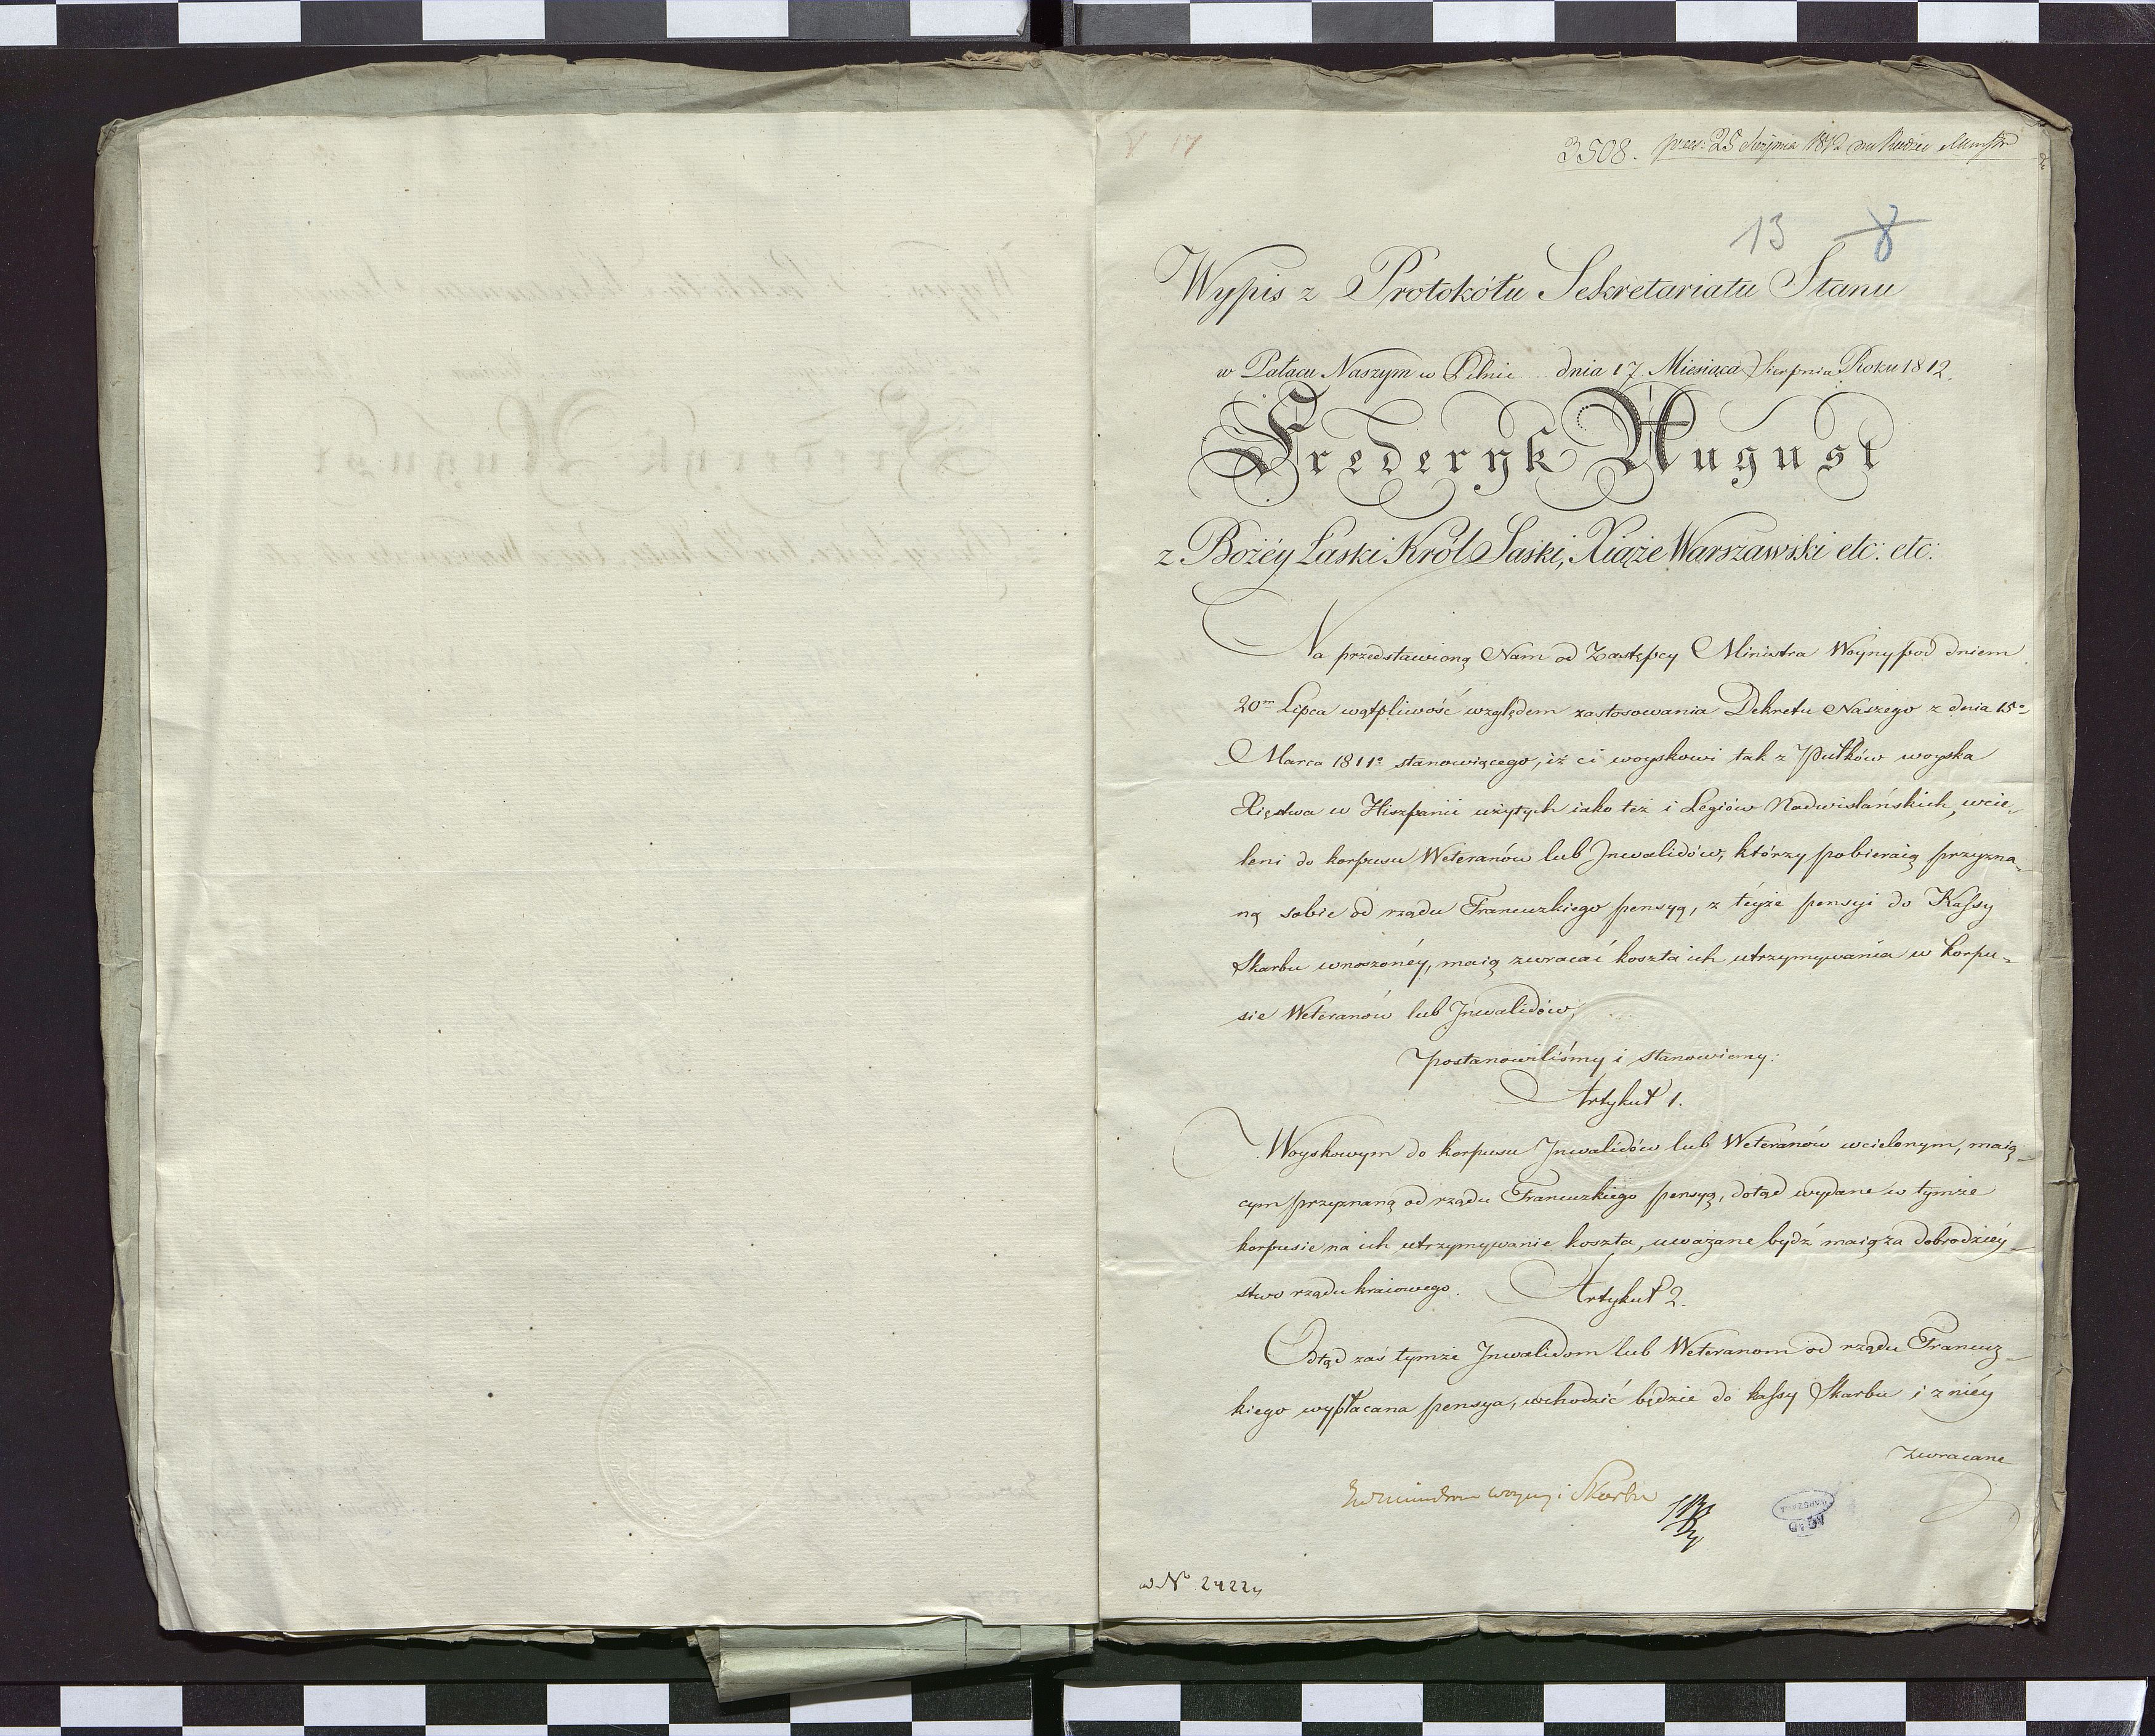 3508. prez: 25 Sierpnia 1812 na Radzie Ministr
13 8
Wypis z Protokółu Sekretariatu Stanu
w Pałacu Naszym w Pilnic dnia 17 Miesiąca Sierpnia Roku 1812.
Fryderyk August
z Bożéy Łaski Król Saski, Xiąże Warszawski etc: etc:
Na przedstawioną Nam od Zastępcy Ministra Woyny pod dniem
20m Lipca wątpliwość względem zastosowania Dekretu Naszego z dnia 15o
Marca 1811o stanowiącego, iż ci woyskowi tak z Pułków woyska
Xięstwa w Hiszpanii użytych iako też i Legiów Nadwiślańskich, wcie-
leni do korpusu Weteranów lub Jnwalidów, którzy pobieraią przyzna-
ną sobie od rządu Francuzkiego pensyą, z téyże pensyi do Kassy
Skarbu wnoszonéy, maią zwracać koszta ich utrzymywania w korpu-
sie Weteranów lub Jnwalidów,
Postanowiliśmy i stanowiemy:
Artykuł 1.
Woyskowym do korpusu Jnwalidów lub Weteranów wcielonym, maią-
cym przyznaną od rządu Francuzkiego pensyą, dotąd wydane w tymże
korpusie na ich utrzymywanie koszta, uważane bydź maią za dobrodziéy-
stwo rządu kraiowego. Artykuł 2.
Odtąd zaś tymże Jnwalidom lub Weteranom od rządu Francuz-
kiego wypłacana pensya, wchodzić będzie do kassy Skarbu i z niéy
zwracane
woyny i Skarbu
AGAD
w No 24224